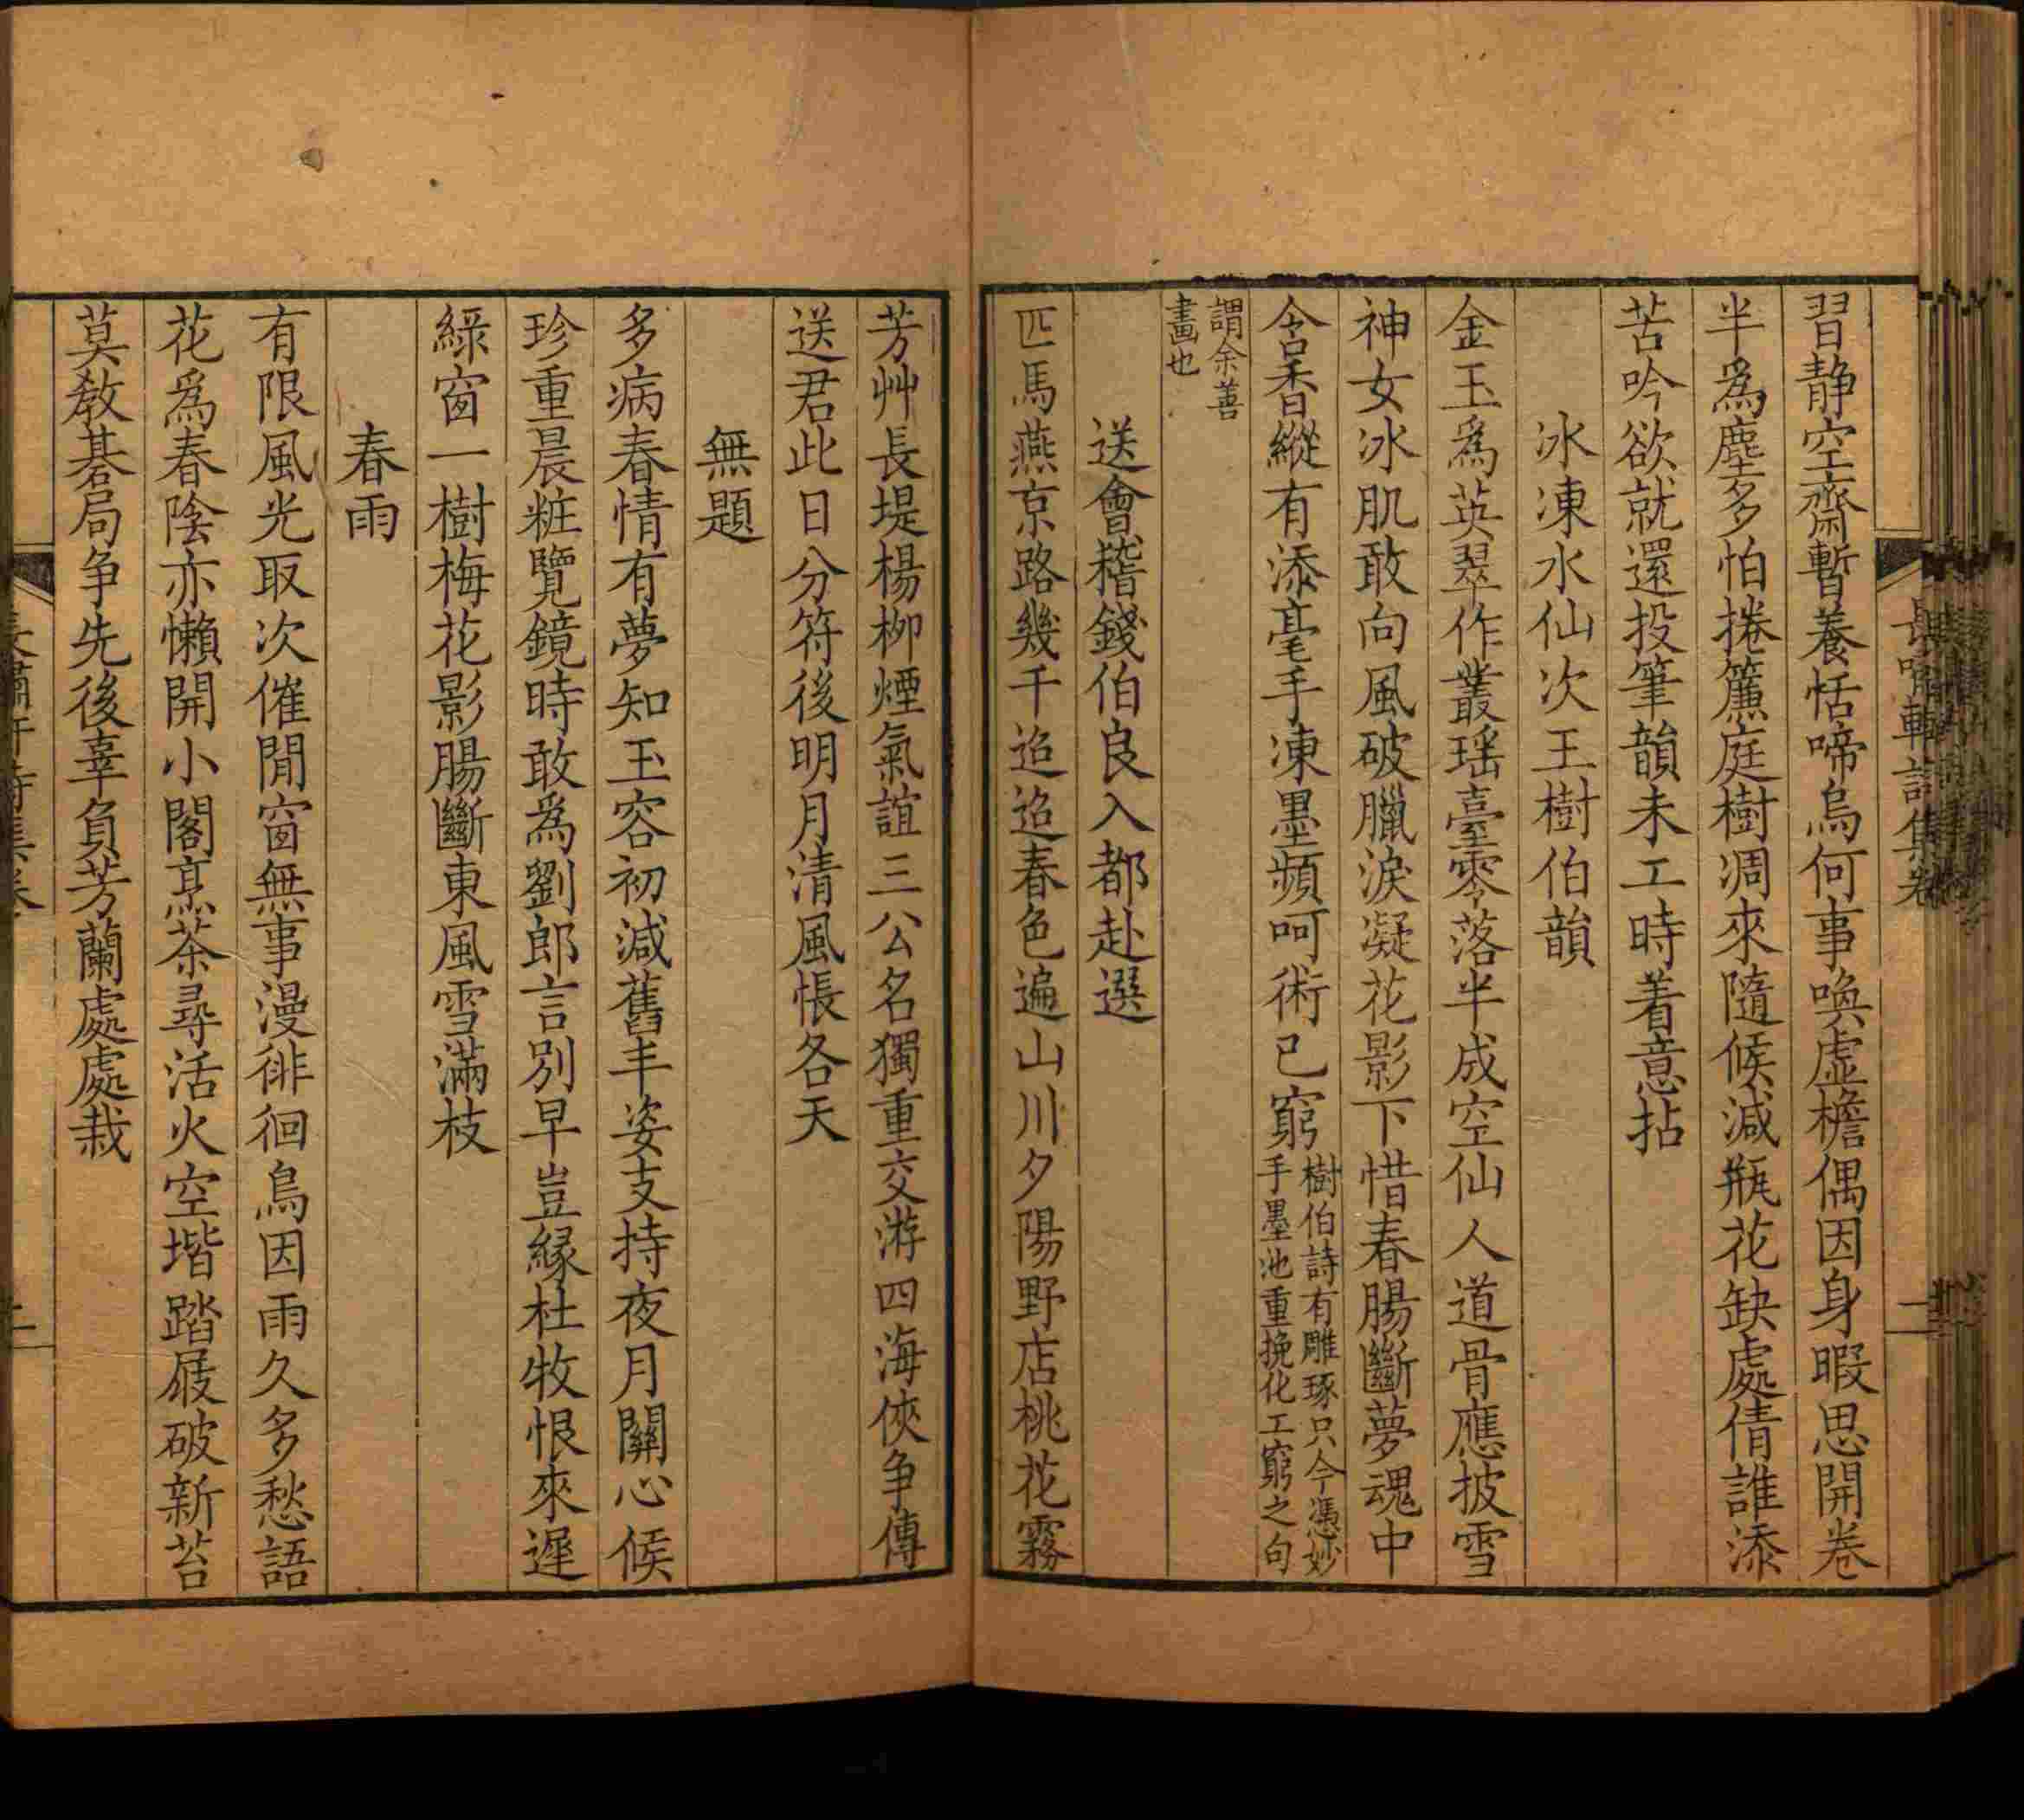 習靜空齋暫養恬啼鳥何事喚虛檐偶因身暇思開卷
半爲塵多怕捲簾庭樹凋來隨候減瓶花缺處倩誰添
苦吟欲就還投筆韻未工時着意拈
冰凍水仙次王樹伯韻
金玉爲英翠作叢瑶臺零落半成空仙人道骨應披雪
神女冰肌敢向風破臘淚凝花影下惜春腸斷夢魂中
含香縱有添毫手凍墨頻呵術已窮
樹伯詩有雕琢只今憑妙
手墨池重挽化工窮之句
謂余善
畫也
送會稽錢伯良入都赴選
匹馬燕京路幾千迢迢春色遍山川夕陽野店桃花霧
芳艸長堤楊柳煙氣誼三公名獨重交游四海俠争傳
送君此日分符後明月清風悵各天
無題
多病春情有夢知玉容初減舊丰姿支持夜月關心候
珍重晨粧覽鏡時敢爲劉郎言別早豈緣杜牧恨來遲
綠窗一樹梅花影腸斷東風雪滿枝
春雨
有限風光取次催閒窗無事漫徘徊鳥因雨久多愁語
花爲春陰亦懶開小閣烹茶尋活火空堦踏屐破新苔
莫教碁局争先後辜負芳蘭處處栽